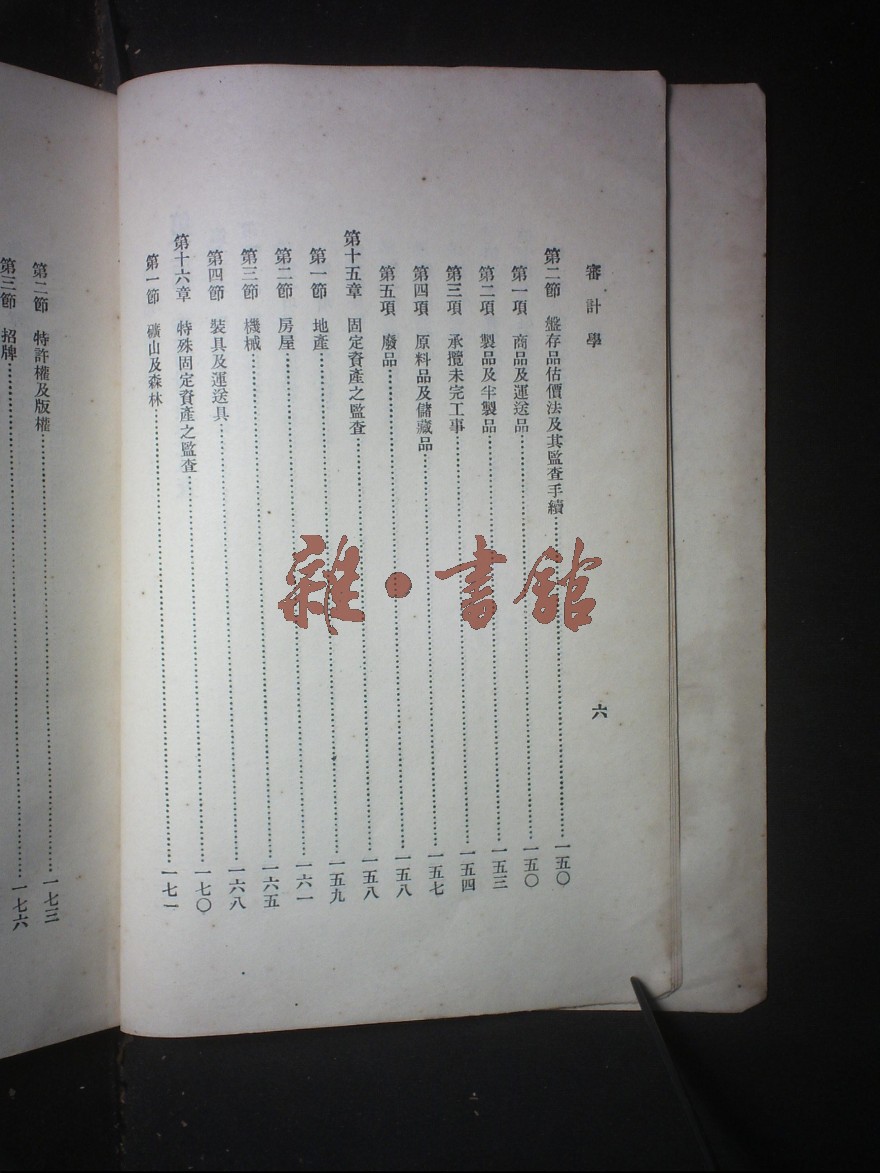 審計學 六
第二節 盤存品估價法及其監查手續 一五〇
第一項 商品及運送品 一五〇
第二項 製品及半製品 一五三
第三項 承攬未完工事 一五四
第四項 原料品及儲藏品 一五七
第五項 廢品 一五八
第十五章 固定資產之監查 一五八
第一節 地產 一五九
第二節 房屋 一六一
第三節 機械 一六五
第四節 裝具及運送具 一六八
第十六章 特殊固定資產之監查 一七〇
第一節 礦山及森林 一七一
第二節 特許權及版權 一七三
第三節 招牌 一七六
雜·書館